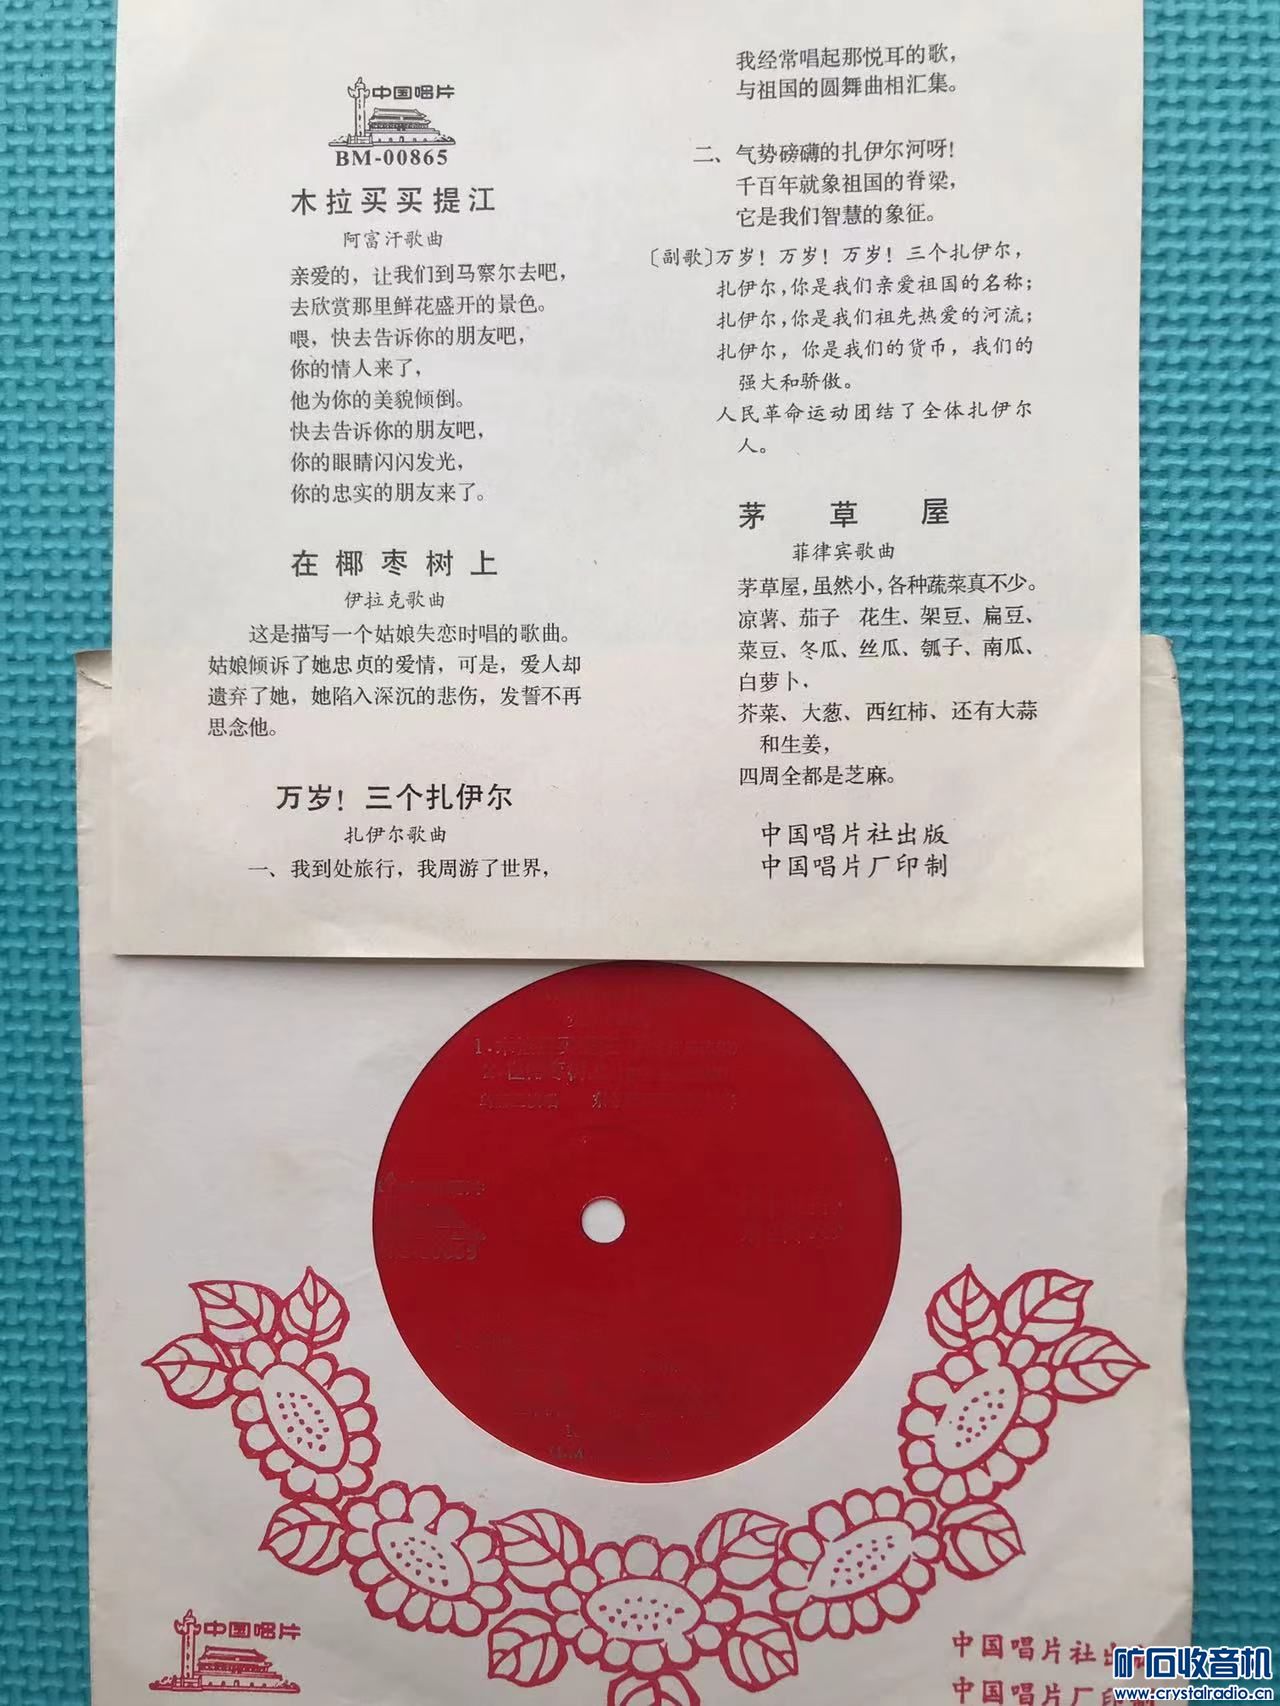 中国唱片
BM-00865
木拉买买提江
阿富汗歌曲
亲爱的，让我们到马察尔去吧，
去欣赏那里鲜花盛开的景色。
喂，快去告诉你的朋友吧，
你的情人来了，
他为你的美貌倾倒。
快去告诉你的朋友吧，
你的眼睛闪闪发光，
你的忠实的朋友来了。
在椰枣树上
伊拉克歌曲
这是描写一个姑娘失恋时唱的歌曲。
姑娘倾诉了她忠贞的爱情，可是，爱人却
遗弃了她，她陷入深沉的悲伤，发誓不再
思念他。
万岁！三个扎伊尔
扎伊尔歌曲
一、我到处旅行，我周游了世界，
我经常唱起那悦耳的歌，
与祖国的圆舞曲相汇集。
二、气势磅礴的扎伊尔河呀！
千百年就象祖国的脊梁，
它是我们智慧的象征。
〔副歌〕万岁！万岁！万岁！三个扎伊尔，
扎伊尔，你是我们亲爱祖国的名称；
扎伊尔，你是我们祖先热爱的河流；
扎伊尔，你是我们的货币，我们的
强大和骄傲。
人民革命运动团结了全体扎伊尔
人。
茅草屋
菲律宾歌曲
茅草屋，虽然小，各种蔬菜真不少。
凉薯、茄子 花生、架豆、扁豆、
菜豆、冬瓜、丝瓜、瓠子、南瓜、
白萝卜，
芥菜、大葱、西红柿、还有大蒜
和生姜，
四周全都是芝麻。
中国唱片社出版
中国唱片厂印制
中国唱片
中国唱片社出版
中国唱片厂印制
矿石收音机
www.crystalradio.cn